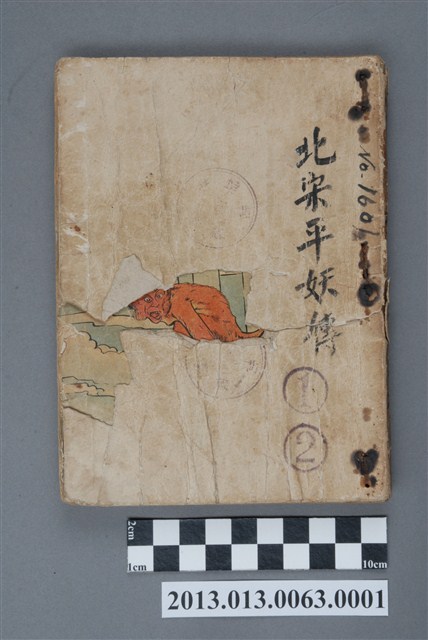 北宋平妖傳
No. 1601
1
2
2cm
1cm
10cm
2013.013.0063.0001